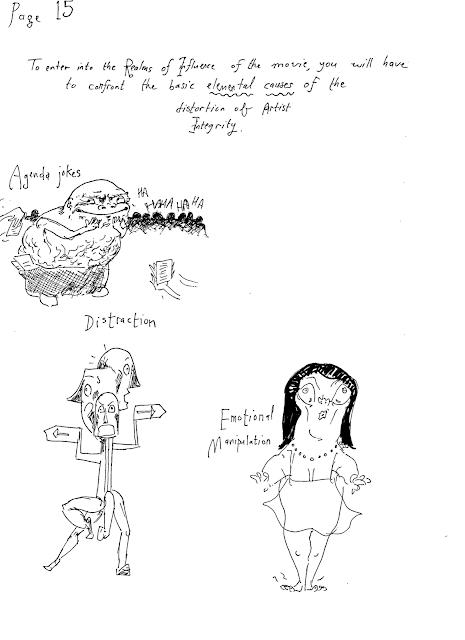 Page 15
To enter into the Realms of Influence of the movie, you will have
to confront the basic elemental causes of the
distortion of Artist
Integrity.
Agenda jokes
HA
HAHA HA HA
Distraction
Emotional
Manipulation